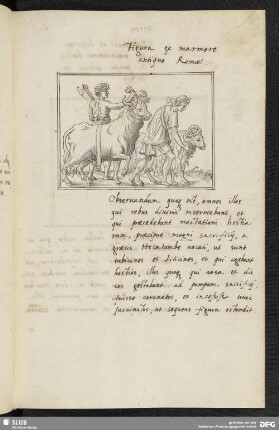 Figura ex marmore
antiquo Romae
Observandum quoq est, omnes illos
qui rebus divinis inserviebant, et
qui praecedebant mactationi hostia
rum, praecipue magni sacrificij, a
graecis Hecatombe vocati, ut sunt
tubicines et fidicines, et qui agebant
hostias, illos quoq qui vasa et dis
cos gestabant ad pompam sacrificij
fuisse coronatos, et
succinctos, ut sequens figura ostendit
SLUB
DFG